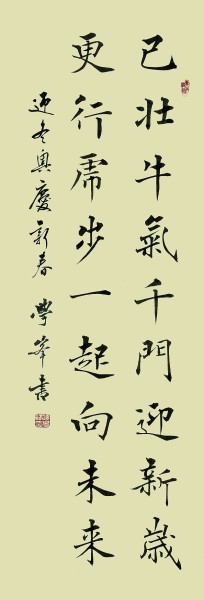 已壮牛氣千門迎新歲
更行虎步一起向未来
迎冬奥慶新春 學峯書